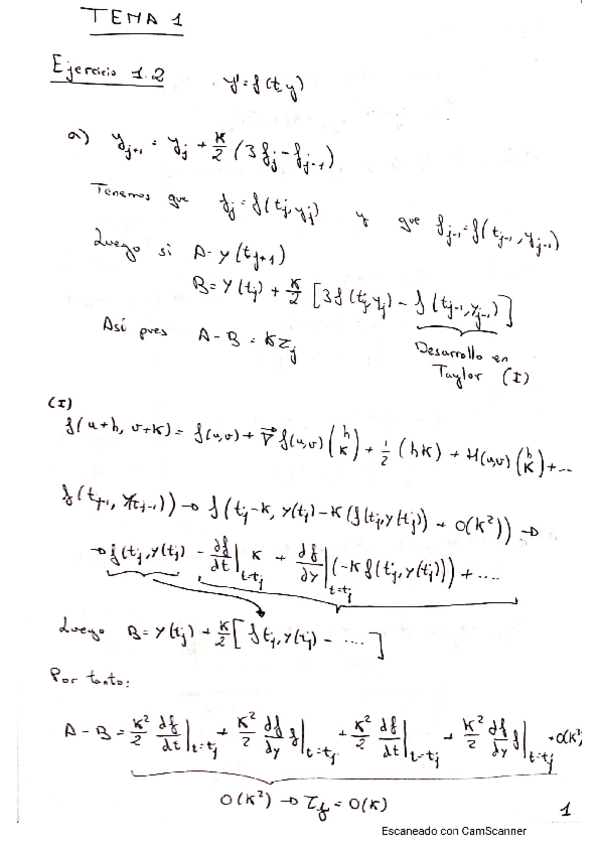 TEMA 1
Ejercicio 1.2 y' = f(t,y)
a) y_{j+1} = y_j + K/2 (3f_j - f_{j-1})
Tenemos que f_j = f(t_j, y_j) y que f_{j-1} = f(t_{j-1}, y_{j-1})
Luego si A = y(t_{j+1})
B = y(t_j) + K/2 [3f(t_j, y_j) - f(t_{j-1}, y_{j-1})]
Así pues A - B = Kτ_j
Desarrollo en
Taylor (I)
(I)
f(u+h, v+K) = f(u,v) + ∇f(u,v) (h K) + 1/2 (h K) + H(u,v) (h K) + ...
f(t_{j-1}, y(t_{j-1})) → f(t_j - K, y(t_j) - K(f(t_j, y(t_j)) + O(K²)) →
→ f(t_j, y(t_j)) - df/dt|_{t=t_j} K + df/dy|_{t=t_j} (-K f(t_j, y(t_j))) + ....
Luego B = y(t_j) + K/2 [f(t_j, y(t_j) - ....]
Por tanto:
A - B = K²/2 df/dt|_{t=t_j} + K²/2 df/dy f|_{t=t_j} + K²/2 df/dt|_{t=t_j} + K²/2 df/dy f|_{t=t_j} + O(K³)
O(K²) → τ_j = O(K)
1
Escaneado con CamScanner